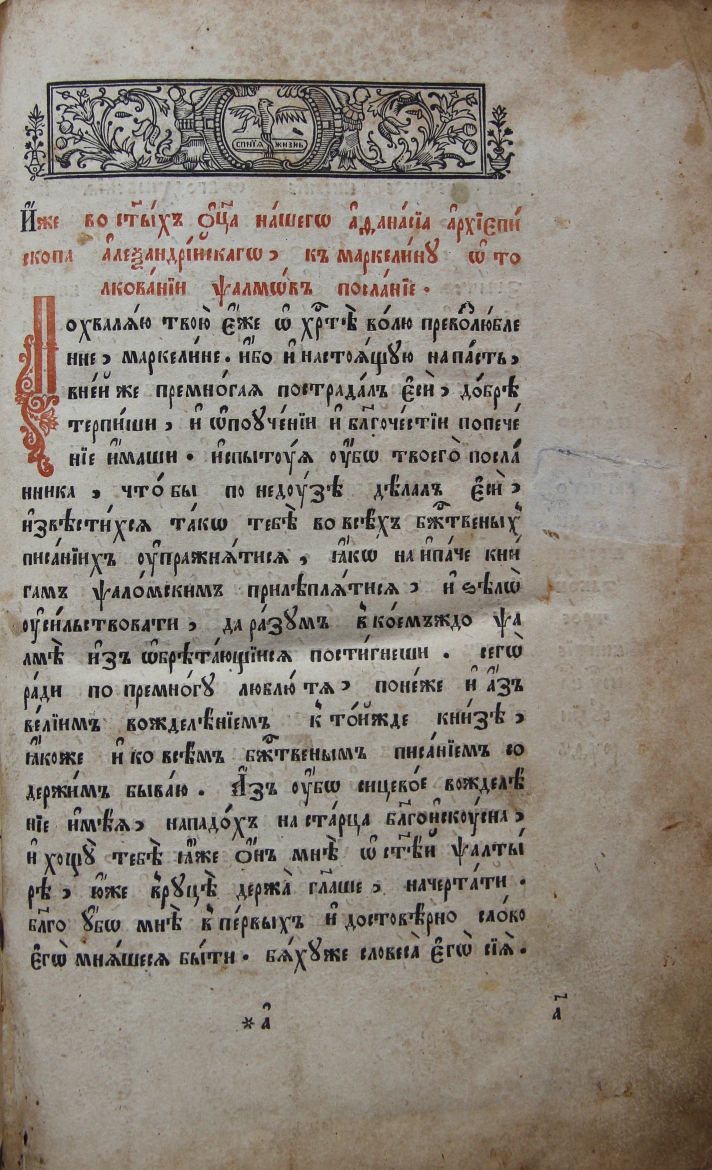 СПНІЯ ЖИЗНЬ
И҆́же во ст҃ы́хъ ѻ҆ц҃а на́шегѡ а҆ѳана́сїа а҆рхїєпи́
скопа а҆леѯандрі́йскагѡ, къ маркели́ну ѡ҆ то
лкова́нїи ѱалмѡ́въ посла́нїе.
Похвалѧ́ю твою̀ є҆́же ѡ҆ хрⷭ҇тѣ̀ во́лю превоⷥлю́бле
нне, маркели́не. и҆́бо и҆ настоѧ́щꙋю напа́сть,
вне́й же премно́гаѧ пострада́лъ є҆сѝ, до́брѣ
терпи́ши, и҆ ѡ҆поуче́нїи и҆ бл҃гоче́стїи попече́
нїе и҆́маши. и҆спытоуѧ ᲂу҆́бѡ твоего̀ посла́
нника, что́бы по недоу́зѣ дѣ́лалъ є҆сѝ,
и҆звѣсти́хсѧ та́кѡ тебѣ̀ во всѣ́хъ бж҃твеныⷯ
писа́нїихъ ᲂу҆пражнѧ́тисѧ, ꙗ҆́кѡ наи҆па́че кни́
гамъ ѱало́мскимъ прилѣплѧ́тисѧ, и҆ ѕѣлѡ̀
ᲂу҆си́льствовати, да ра́зумъ в̾ко́емъждо ѱа
лмѣ̀ и҆зъ ѡ҆брѣта́ющїисѧ пости́гнеши. сегѡ̀
ра́ди по премно́гꙋ люблю́ тѧ, поне́же и҆ а҆́зъ
ве́лїимъ вожделѣ́нїемъ к̾ то́йжде кни́зѣ,
ꙗ҆́коже и҆ ко всѣ́мъ бж҃твенымъ писа́нїемъ со
держи́мъ быва́ю. А҆́зъ ᲂу҆́бѡ сицево́е вожделѣ́
нїе и҆мѣ́ѧ, нападо́хъ на ста́рца бл҃гои҆скоу́сна,
и҆ хощꙋ̀ тебѣ̀ ꙗ҆́же ѻ҆́нъ мнѣ̀ ѡ҆ ст҃ѣ́й ѱалты́
рѣ, ю҆́же в̾рꙋцѣ̀ держа̀ гл҃аше, начерта́ти.
бл҃го ᲂу҆́бѡ мнѣ̀ в̾ пе́рвыхъ и҆ достовѣ́рно сло́во
є҆гѡ̀ мнѧ́шесѧ бы́ти. бѧ́хꙋже словеса̀ є҆гѡ̀ сїѧ̀.
*а҆
а҃